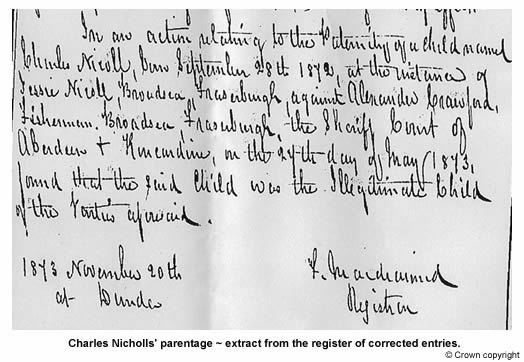 In an action relating to the Paternity of a child named
Charles Nicoll, born September 28th 1872, at the instance of
Jessie Nicoll, Broadsea, Fraserburgh, against Alexander Crawford,
Fisherman, Broadsea, Fraserburgh, the Sheriff Court of
Aberdeen + Kincardine, on the 27th day of May 1873,
found that the said Child was the Illegitimate Child
of the Parties aforesaid.
1873 November 20th
at Dundee
Registrar
Charles Nicholls' parentage ~ extract from the register of corrected entries.
© Crown copyright